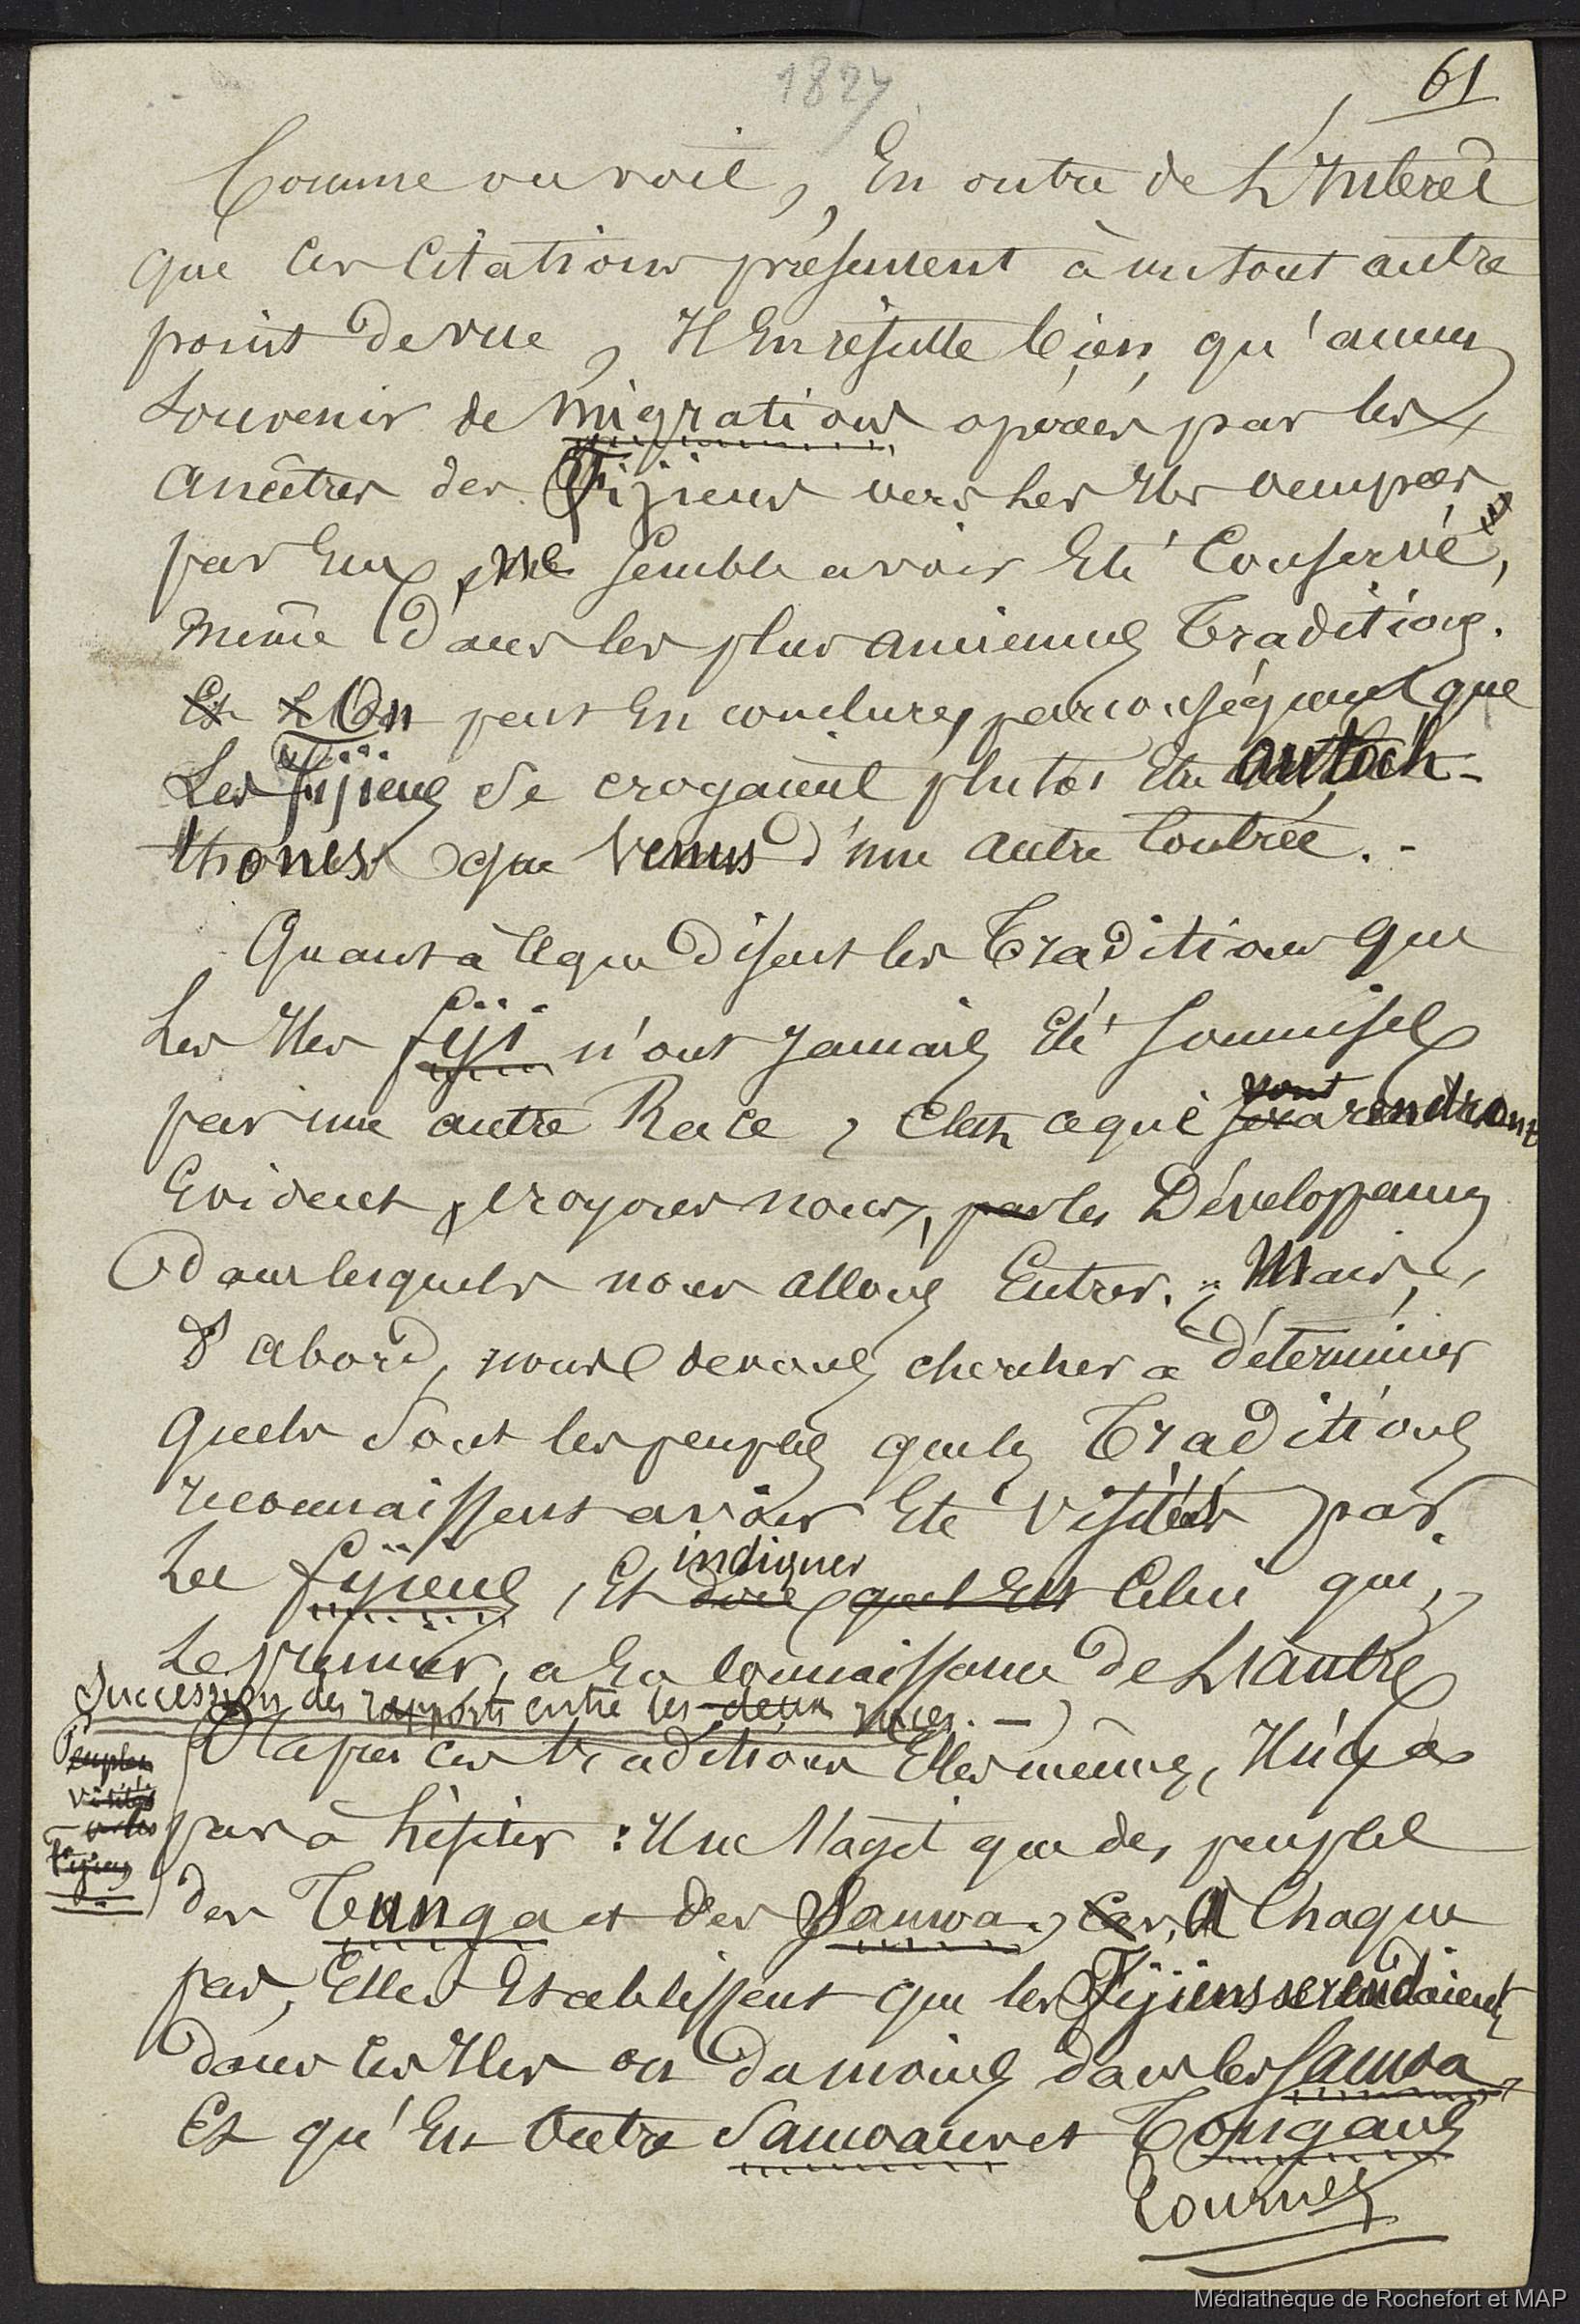 1827
61
Comme on voit, En outre de L'Intérêt
que ces Citations présentent à un tout autre
point de vue, Il En résulte bien qu'aucun
Souvenir de migrations opérées par les
ancêtres des Fijiens vers les Iles occupées
par Eux, ne semble avoir Eté Conservé,
même dans les plus anciennes Traditions.
Et L'On peut En conclure, par conséquent que
Les Fijiens se croyaient plutôt Etre autoch-
thones que venus d'une autre Contrée. -
Quant à ce que disent les Traditions que
Les Iles fiji n'ont Jamais Eté Soumises
par une autre Race, C'est ce que
vont
sera rendront
Evident, croyons nous, par les Développemens
dans lesquels nous allons Entrer. Mais,
d'abord, nous devons chercher à déterminer
quels sont les peuples que les Traditions
reconnaissent avoir Eté visités par
Les fijiens, Et
indiquer
dire quel Est Celui qui,
Le premier, a Eu connaissance de L'autre
Succession des rapports entre les deux races. -
Peuples
visités
par les
Fijiens
D'après ces traditions Elles mêmes, Il n'y a
pas à hésiter : Il ne s'agit que des peuples
des Tunga et des Samoa, Car, A Chaque
pas, Elles Etablissent que les Fijiens se rendaient
dans ces Iles ou du moins dans les Samoa,
Et qu'En Outre Samoans et Tongans
Tournez
Médiathèque de Rochefort et MAP